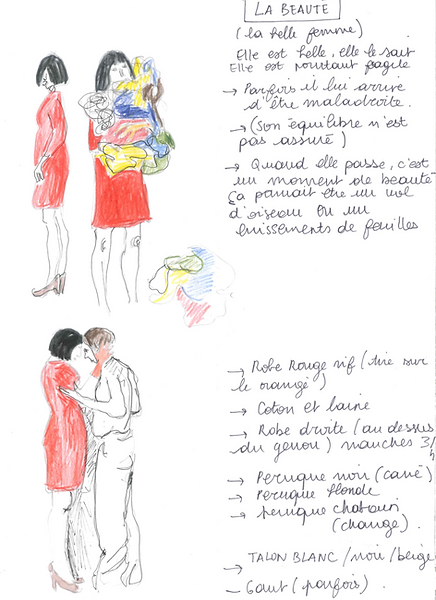 LA BEAUTE
(la belle femme)
Elle est belle, elle le sait
Elle est pourtant fragile
→ Parfois il lui arrive
d'être maladroite.
→ (Son équilibre n'est
pas assuré)
→ Quand elle passe, c'est
un moment de beauté
ça pourrait être un vol
d'oiseau ou un
bruissements de feuilles
→ Robe Rouge vif (tire sur
le orangé)
→ Coton et laine
→ Robe droite (au dessus
du genou) manches 3/4
→ Perruque noir (carré)
→ Perruque blonde
→ perruque chatain
(change).
→ TALON BLANC/noir/beige
→ Gant (parfois).